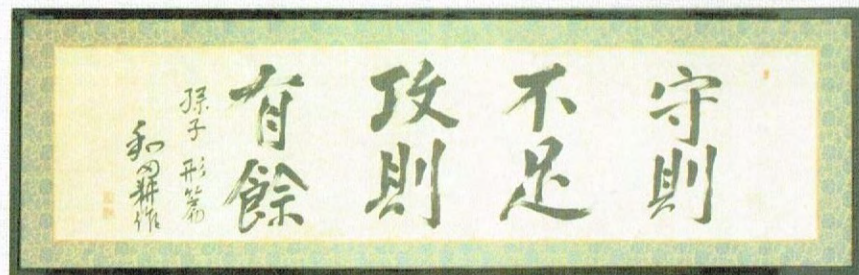 守則
不足
攻則
有餘
孫子 形篇
和田耕作